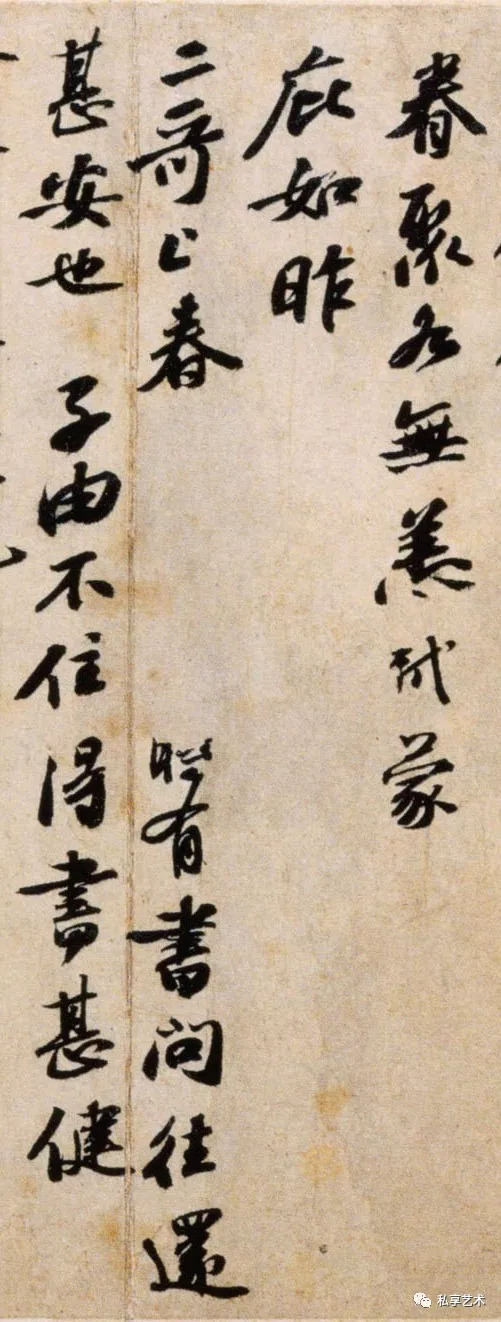 眷聚各無恙軾蒙
庇如昨
二哥上春 有書問往還
甚安也 子由不住得書甚健
私享艺术